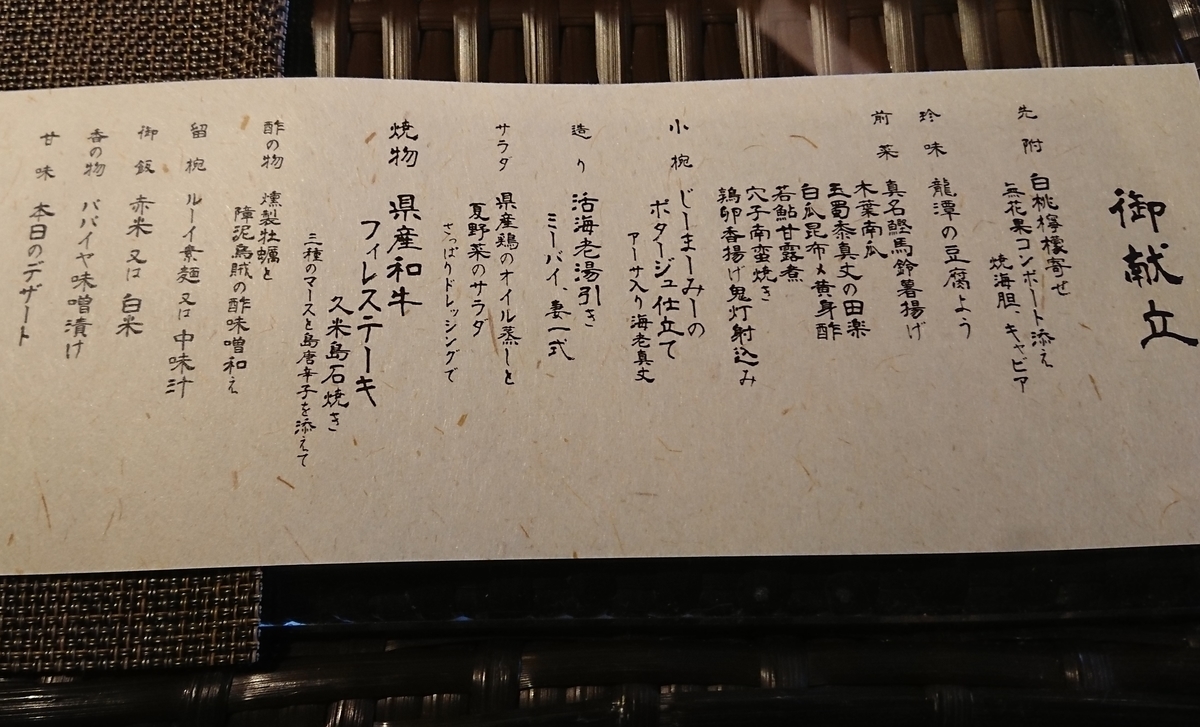 御献立
先附 白桃檸檬寄せ
無花果コンポート添え
焼海胆、キャビア
珍味 龍潭の豆腐よう
前菜 真名鰹馬鈴薯揚げ
木葉南瓜
玉蜀黍真丈の田楽
白瓜昆布〆黄身酢
若鮎甘露煮
穴子南蛮焼き
鶏卵香揚げ鬼灯射込み
小椀 じーまーみーの
ポタージュ仕立て
アーサ入り海老真丈
造り 活海老湯引き
ミーバイ、妻一式
サラダ 県産鶏のオイル蒸しと
夏野菜のサラダ
さっぱりドレッシングで
焼物 県産和牛
フィレステーキ
久米島石焼き
三種のマースと島唐辛子を添えて
酢の物 燻製牡蠣と
障泥烏賊の酢味噌和え
留椀 ルーイ素麺 又は 中味汁
御飯 赤米 又は 白米
香の物 パパイヤ味噌漬け
甘味 本日のデザート